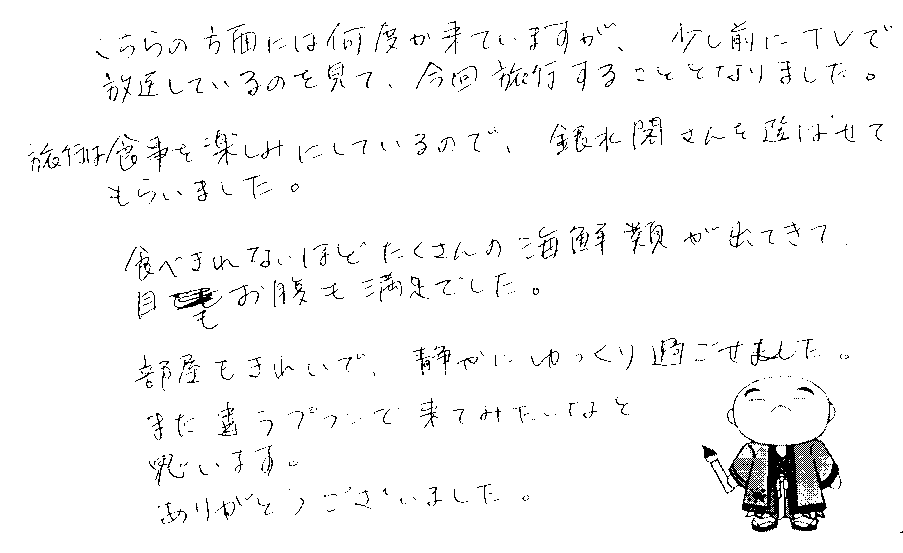 こちらの方面には何度か来ていますが、少し前にTVで
放送しているのを見て、今回旅行することとなりました。
旅行は食事を楽しみにしているので、銀水閣さんを選ばせて
もらいました。
食べきれないほどたくさんの海鮮類が出てきて、
目もお腹も満足でした。
部屋もきれいで、静かにゆっくり過ごせました。
また違うプランで来てみたいなと
思います。
ありがとうございました。